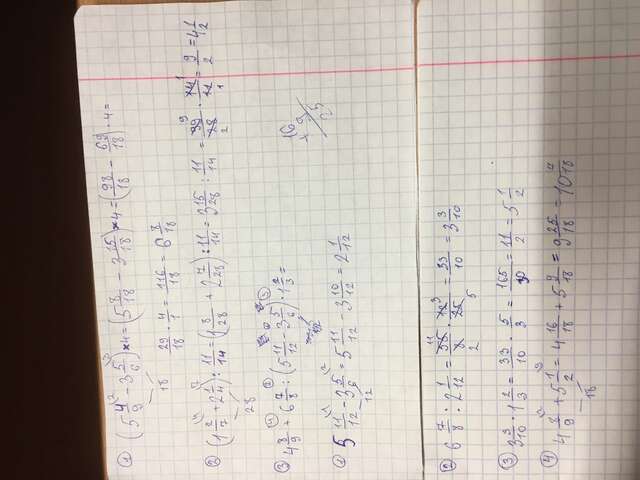 ① (5 4/9 - 3 5/6) × 4 = (5 8/18 - 3 15/18) × 4 = (98/18 - 69/18) · 4 =
29/18 · 4/1 = 116/18 = 6 8/18
② (1 2/7 + 2 1/4) : 11/14 = (1 8/28 + 2 7/28) : 11/14 = 3 15/28 : 11/14 = 99/28 · 14/11 = 9/2 = 4 1/2
③ 4 8/9 + 6 7/8 : (5 11/12 - 3 5/6) · 1 2/3 =
① 5 11/12 - 3 5/6 = 5 11/12 - 3 10/12 = 2 1/12
② 6 7/8 : 2 1/12 = 55/8 · 12/25 = 33/10 = 3 3/10
③ 3 3/10 · 1 2/3 = 33/10 · 5/3 = 165/30 = 11/2 = 5 1/2
④ 4 8/9 + 5 1/2 = 4 16/18 + 5 9/18 = 9 25/18 = 10 /18